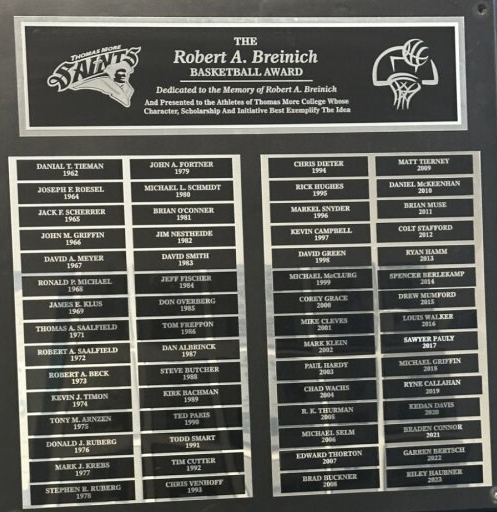 THOMAS MORE
SAINTS
THE
Robert A. Breinich
BASKETBALL AWARD
Dedicated to the Memory of Robert A. Breinich
And Presented to the Athletes of Thomas More College Whose
Character, Scholarship And Initiative Best Exemplify The Idea
DANIAL T. TIEMAN
1962
JOSEPH F. ROESEL
1964
JACK F. SCHERRER
1965
JOHN M. GRIFFIN
1966
DAVID A. MEYER
1967
RONALD P. MICHAEL
1968
JAMES E. KLUS
1969
THOMAS A. SAALFIELD
1971
ROBERT A. SAALFIELD
1972
ROBERT A. BECK
1973
KEVIN J. TIMON
1974
TONY M. ARNZEN
1975
DONALD J. RUBERG
1976
MARK J. KREBS
1977
STEPHEN R. RUBERG
1978
JOHN A. FORTNER
1979
MICHAEL L. SCHMIDT
1980
BRIAN O'CONNER
1981
JIM NESTHEIDE
1982
DAVID SMITH
1983
JEFF FISCHER
1984
DON OVERBERG
1985
TOM FREPPON
1986
DAN ALBRINCK
1987
STEVE BUTCHER
1988
KIRK BACHMAN
1989
TED PARIS
1990
TODD SMART
1991
TIM CUTTER
1992
CHRIS VENHOFF
1993
CHRIS DIETER
1994
RICK HUGHES
1995
MARKEL SNYDER
1996
KEVIN CAMPBELL
1997
DAVID GREEN
1998
MICHAEL McCLURG
1999
COREY GRACE
2000
MIKE CLEVES
2001
MARK KLEIN
2002
PAUL HARDY
2003
CHAD WACHS
2004
R. K. THURMAN
2005
MICHAEL SELM
2006
EDWARD THORTON
2007
BRAD BUCKNER
2008
MATT TIERNEY
2009
DANIEL McKEENHAN
2010
BRIAN MUSE
2011
COLT STAFFORD
2012
RYAN HAMM
2013
SPENCER BERLEKAMP
2014
DREW MUMFORD
2015
LOUIS WALKER
2016
SAWYER PAULY
2017
MICHAEL GRIFFIN
2018
RYNE CALLAHAN
2019
KEDAN DAVIS
2020
BRADEN CONNOR
2021
GARREN BERTSCH
2022
RILEY HAUBNER
2023